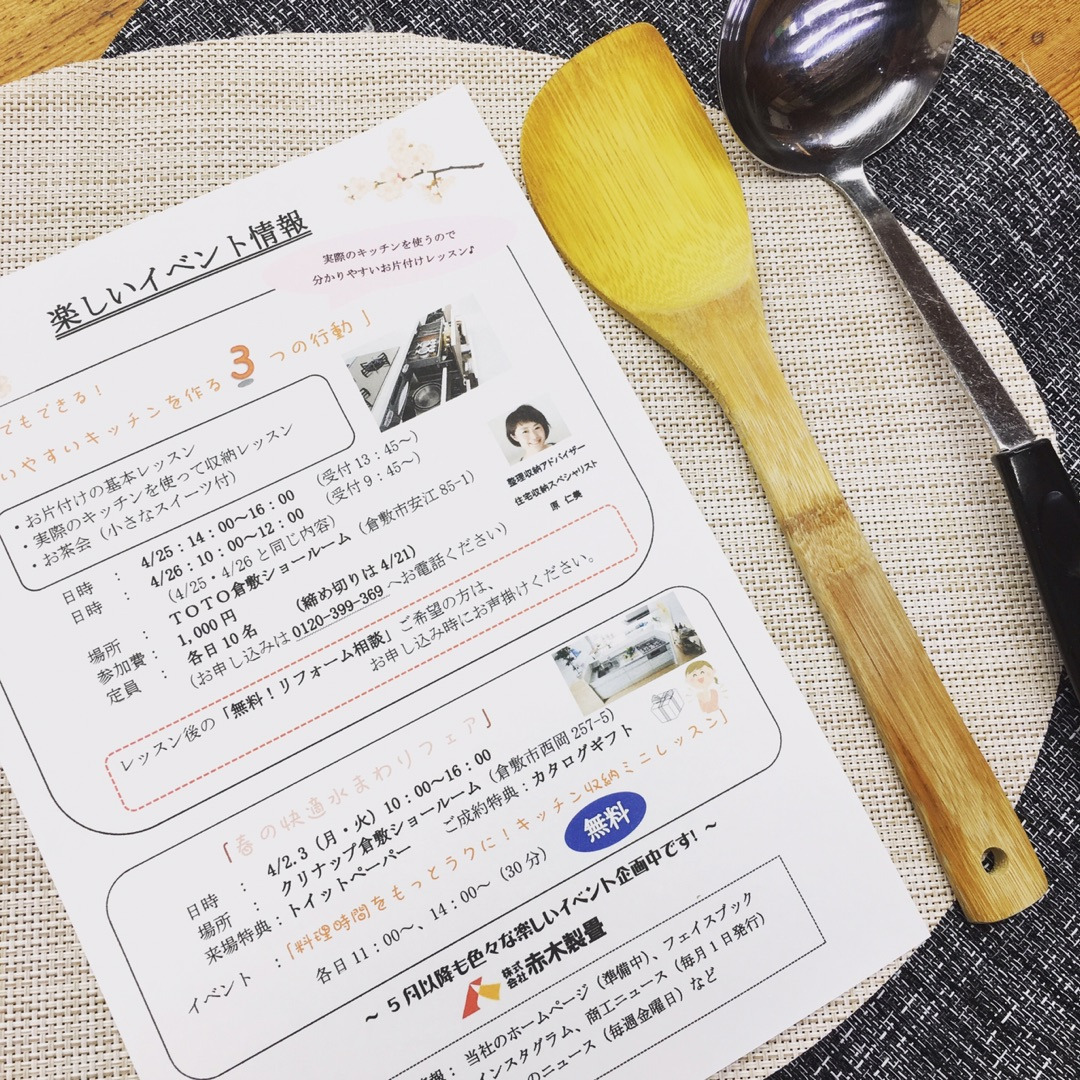 楽しいイベント情報
実際のキッチンを使うので
分かりやすいお片付けレッスン♪
でもできる!
いやすいキッチンを作る3つの行動」
・お片付けの基本レッスン
・実際のキッチンを使って収納レッスン
・お茶会(小さなスイーツ付)
整理収納アドバイザー
住宅収納スペシャリスト
原 仁美
日時 : 4/25:14:00~16:00 (受付13:45~)
日時 : 4/26:10:00~12:00 (受付9:45~)
(4/25・4/26と同じ内容)
場所 : TOTO倉敷ショールーム (倉敷市安江85-1)
参加費: 1,000円
定員 : 各日10名 (締め切りは4/21)
(お申し込みは0120-399-369へお電話ください)
レッスン後の「無料!リフォーム相談」ご希望の方は、
お申し込み時にお声掛けください。
「春の快適水まわりフェア」
日時 : 4/2.3(月・火)10:00~16:00
場所 : クリナップ倉敷ショールーム(倉敷市西岡257-5)
来場特典:トイットペーパー ご成約特典:カタログギフト
イベント :「料理時間をもっとラクに!キッチン収納ミニレッスン」
各日11:00~、14:00~(30分) 無料
~ 5月以降も色々な楽しいイベント企画中です! ~
株式会社 赤木製畳
情報: 当社のホームページ(準備中)、フェイスブック
インスタグラム、商工ニュース(毎月1日発行)
のニュース(毎週金曜日)など